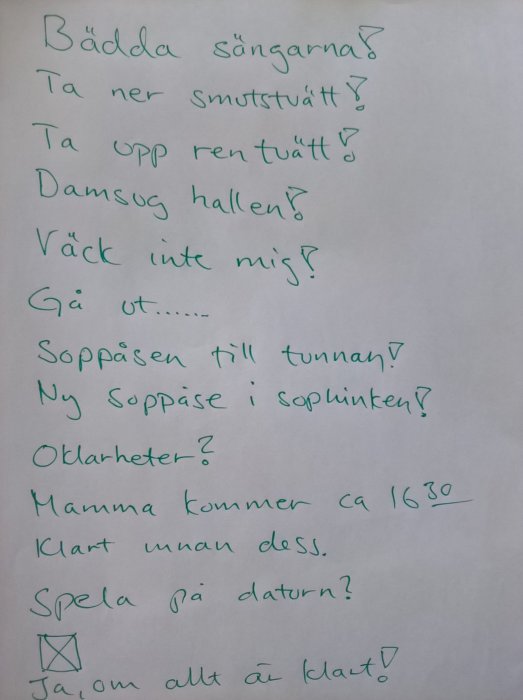 Bädda sängarna!
Ta ner smutstvätt!
Ta upp ren tvätt!
Damsug hallen!
Väck inte mig!
Gå ut......
Soppåsen till tunnan!
Ny soppåse i sophinken!
Oklarheter?
Mamma kommer ca 16 30
Klart innan dess.
Spela på datorn?
☒
Ja, om allt är klart!